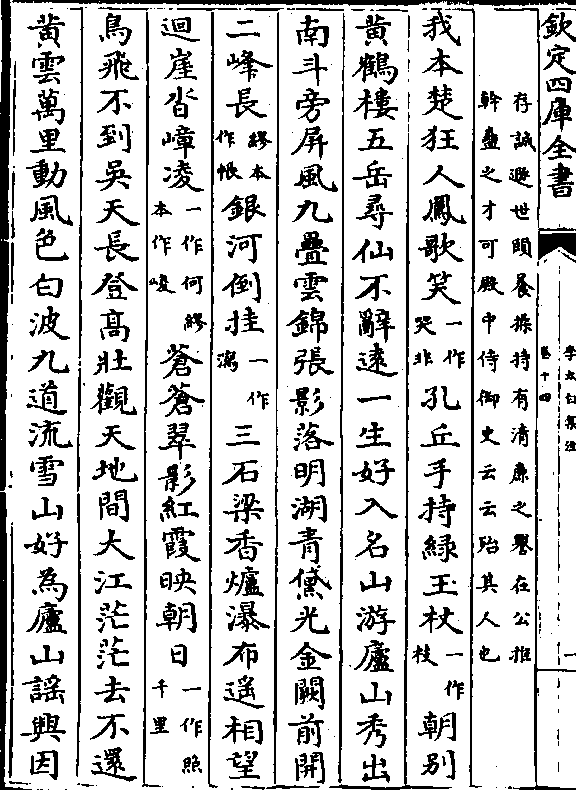 欽定四庫全書
李太白集注
卷十四
一
存誠遯世頤養操持有清廉之譽在公推
幹蠱之才可殿中侍御史云云殆其人也
我本楚狂人鳳歌笑一作哭非孔丘手持綠玉杖一作枝朝别
黄鶴樓五岳尋仙不辭遠一生好入名山游廬山秀出
南斗旁屏風九疊雲錦張影落明湖青黛光金闕前開
二峰長繆本作帳銀河倒挂一作瀉三石梁香爐瀑布遥相望
迴崖沓嶂凌一作何繆本作崚蒼蒼翠影紅霞映朝日一作照千里
鳥飛不到吳天長登高壯觀天地間大江茫茫去不還
黄雲萬里動風色白波九道流雪山好為廬山謡興因